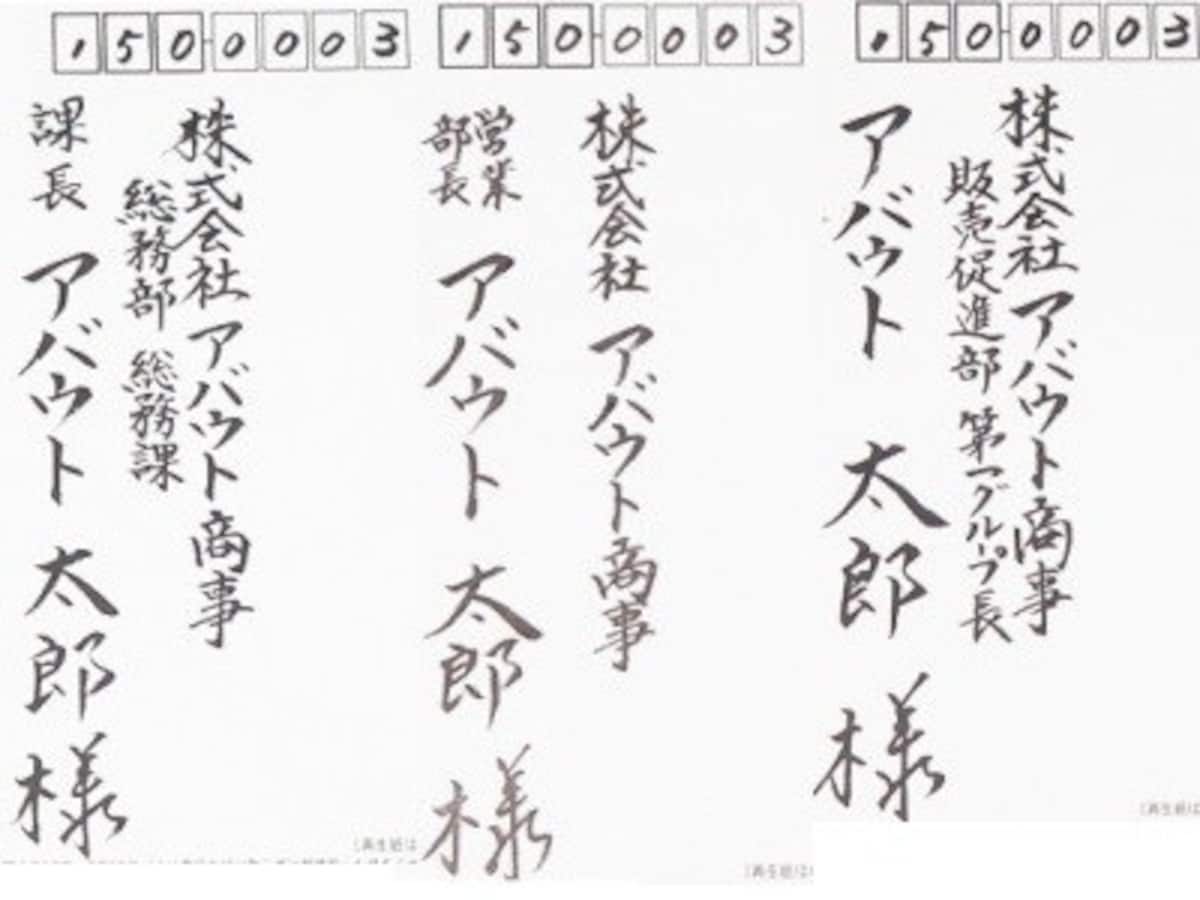 150-0003
株式会社 アバウト商事
総務部 総務課
課長 アバウト 太郎 様
150-0003
株式会社 アバウト商事
営業部長 アバウト 太郎 様
150-0003
株式会社 アバウト商事
販売促進部 第一グループ長
アバウト 太郎 様
(再生紙は
(再生紙は
(再生紙は